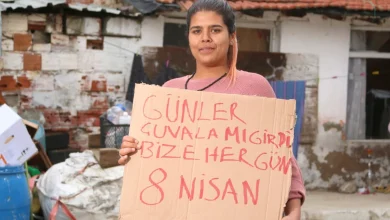 GÜNLER
ÇUVALA MI GİRDİ
BİZE HER GÜN
8 NİSAN